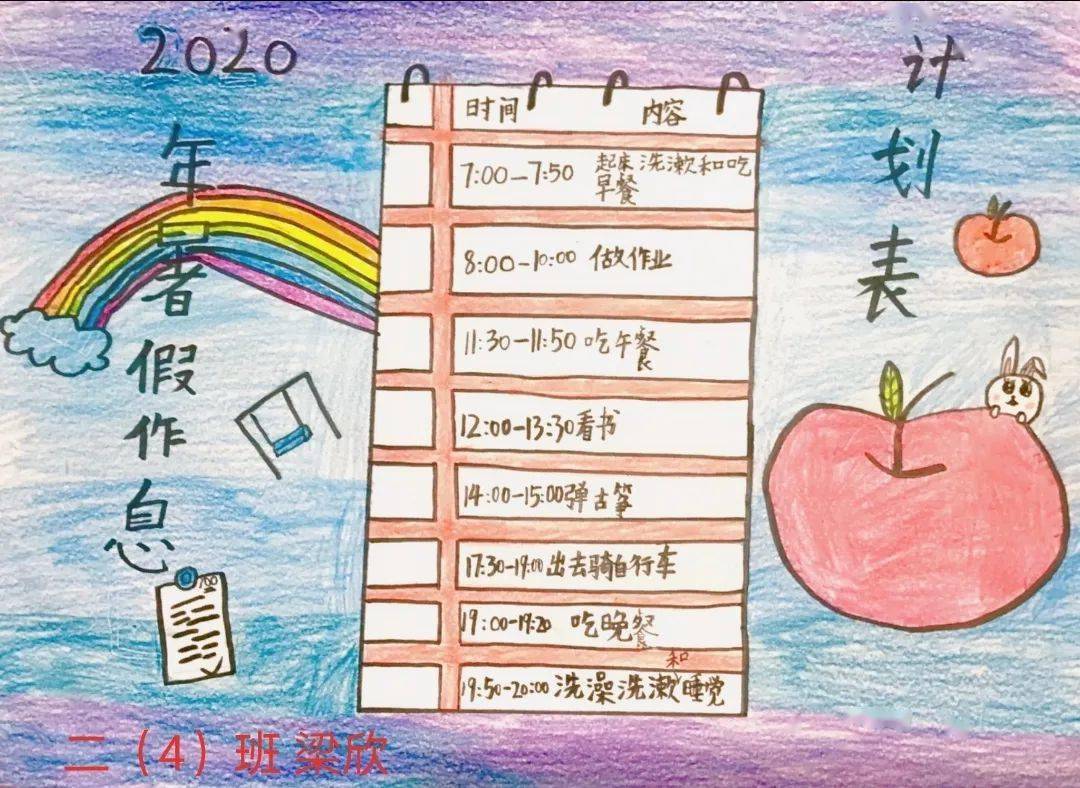 2020
年暑假作息
计划表
时间 内容
7:00—7:50 起床洗漱和吃
早餐
8:00-10:00 做作业
11:30—11:50 吃午餐
12:00-13:30看书
14:00-15:00弹古筝
17:30-19:00出去骑自行车
19:00-19:20 吃晚餐
19:50-20:00 洗澡洗漱和睡觉
100
二（4）班 梁欣